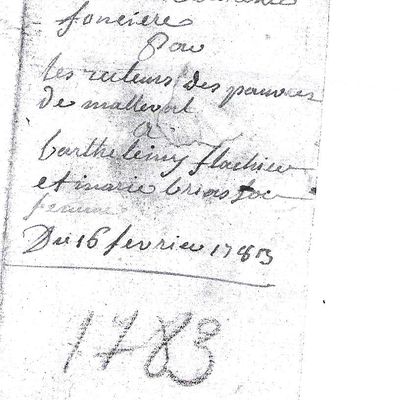 fonciere
Par
les recteurs des pauvres
de malleval
A
barthelemy flachier
et marie brias sa
femme
Du 16 fevrier 1783
1783